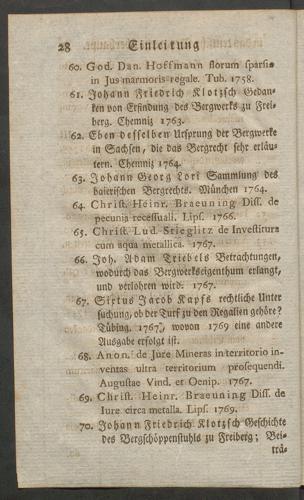 28 Einleitung
60. God. Dan. Hoffmann florum sparsio
in Jus marmoris regale. Tub. 1758.
61. Johann Friedrich Klotzsch Gedan-
ken von Erfindung des Bergwerks zu Frei-
berg. Chemniz 1763.
62. Eben desselben Ursprung der Bergwerke
in Sachsen, die das Bergrecht sehr erläu-
tern. Chemniz 1764.
63. Johann Georg Lori Sammlung des
baierischen Bergrechts. München 1764.
64. Christ. Heinr. Braeuning Diss. de
pecunia recessuali. Lips. 1766.
65. Christ. Lud. Stieglitz de Investitura
cum aqua metallica. 1767.
66. Joh. Adam Triebels Betrachtungen,
wodurch das Bergwerkseigenthum erlangt,
und verlohren wird. 1767.
67. Sixtus Jacob Kapfs rechtliche Unter
suchung, ob der Turf zu den Regalien gehöre?
Tübing. 1767, wovon 1769 eine andere
Ausgabe erfolgt ist.
68. Anon. de Jure Mineras in territorio in-
ventas ultra territorium prosequendi.
Augustae Vind. et Oenip. 1767.
69. Christ. Heinr. Braeuning Diss. de
Iure circa metalla. Lips. 1769.
70. Johann Friedrich Klotzsch Geschichte
des Bergschöppenstuhls zu Freiberg; Bei-
trä-